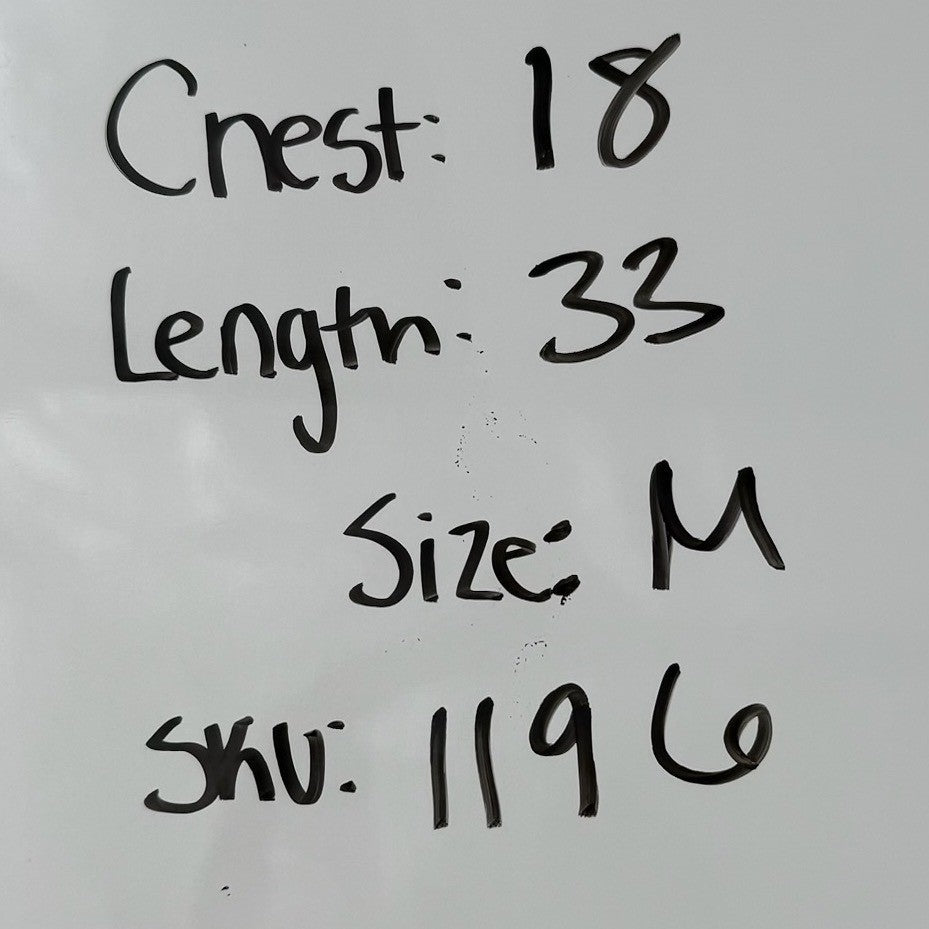 Chest: 18
Length: 33
Size: M
SKU: 1196